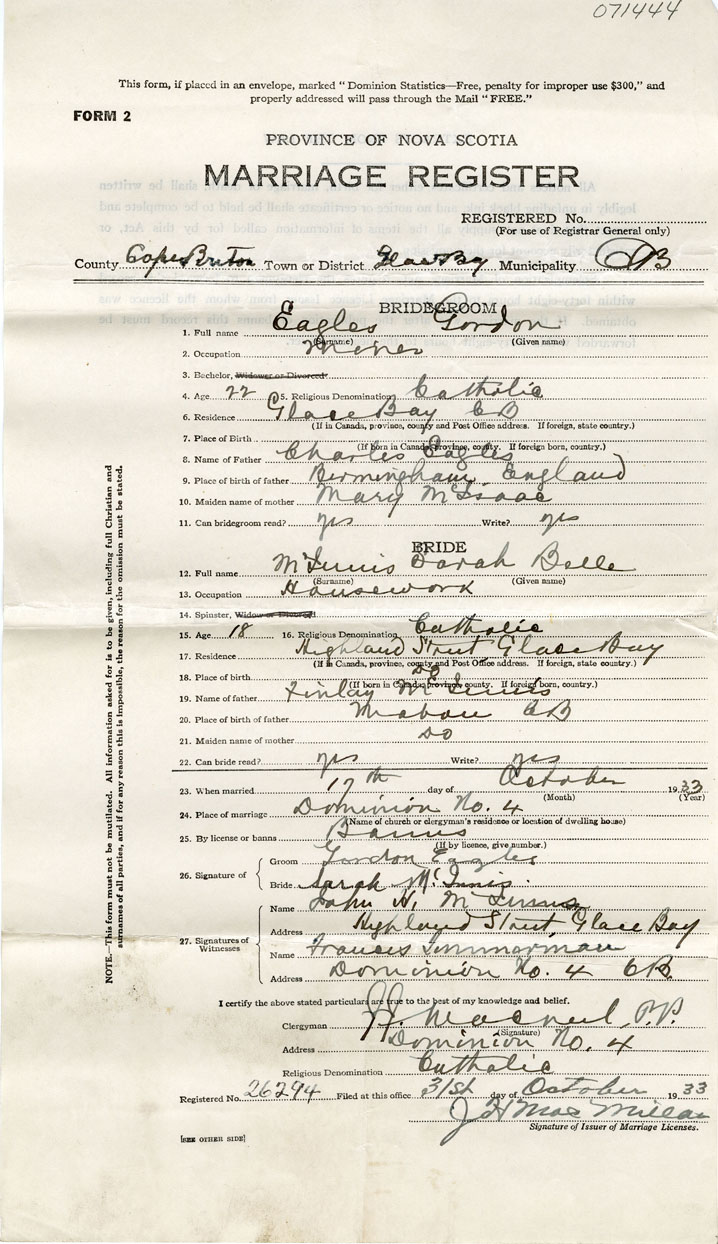 071444
This form, if placed in an envelope, marked "Dominion Statistics—Free, penalty for improper use $300," and
properly addressed will pass through the Mail "FREE."
FORM 2
PROVINCE OF NOVA SCOTIA
MARRIAGE REGISTER
REGISTERED No.
(For use of Registrar General only)
County Cape Breton Town or District Glace Bay Municipality CB
BRIDEGROOM
1. Full name Eagles Gordon
(Surname) (Given name)
2. Occupation Miner
3. Bachelor, Widower or Divorced
4. Age 22 5. Religious Denomination Catholic
6. Residence Glace Bay CB
(If in Canada, province, county and Post Office address. If foreign, state country.)
7. Place of Birth
(If born in Canada, province, county. If foreign born, country.)
8. Name of Father Charles Eagles
9. Place of birth of father Birmingham, England
10. Maiden name of mother Mary McIsaac
11. Can bridegroom read? yes Write? yes
BRIDE
12. Full name McInnis Sarah Belle
(Surname) (Given name)
13. Occupation Housework
14. Spinster, Widow or Divorced
15. Age 18 16. Religious Denomination Catholic
17. Residence Highland Street Glace Bay
(If in Canada, province, county and Post Office address. If foreign, state country.)
18. Place of birth do
(If born in Canada, province, county. If foreign born, country.)
19. Name of father Finlay McInnis
20. Place of birth of father Mabou CB
21. Maiden name of mother do
22. Can bride read? yes Write? yes
23. When married 17th day of October 1933
(Month) (Year)
24. Place of marriage Dominion No. 4
(Name of church or clergyman's residence or location of dwelling house)
25. By license or banns Banns
(If by licence, give number.)
26. Signature of
Groom Gordon Eagles
Bride Sarah McInnis
27. Signatures of Witnesses
Name John H. McInnis
Address Highland Street Glace Bay
Name Francis Timmerman
Address Dominion No. 4 CB
I certify the above stated particulars are true to the best of my knowledge and belief.
Clergyman MacNeil, P.P.
(Signature)
Address Dominion No. 4
Religious Denomination Catholic
Registered No. 26294 Filed at this office 31st day of October 1933
J H MacMillan
Signature of Issuer of Marriage Licenses.
[SEE OTHER SIDE]
NOTE.—This form must not be mutilated. All information asked for is to be given, including full Christian and
surnames of all parties, and if for any reason this is impossible, the reason for the omission must be stated.